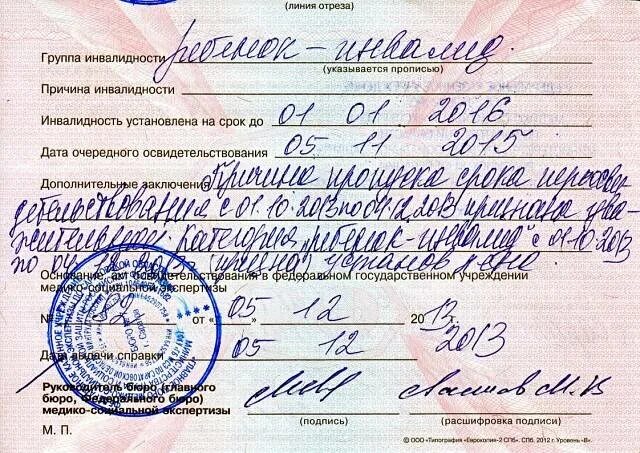 (линия отреза)
Группа инвалидности ребенок - инвалид.
(указывается прописью)
Причина инвалидности —
Инвалидность установлена на срок до 01 01 2016
Дата очередного освидетельствования 05 11 2015
Дополнительные заключения Причина пропуска срока переосви-
детельствования с 01.10.2013 по 04.12.2013 признана ува-
жительной. Категория "ребенок-инвалид" с 01.10.2013
по 04.12.2013 установлена
Основание: акт освидетельствования в федеральном государственном учреждении
медико-социальной экспертизы
№ от « 05 » 12 2013
Дата выдачи справки 05 12 2013
Руководитель бюро (главного
бюро, Федерального бюро)
медико-социальной экспертизы
(подпись) (расшифровка подписи)
М. П.
© ООО «Типография «Еврокопия-2 СПб». СПб. 2012 г. Уровень «В».